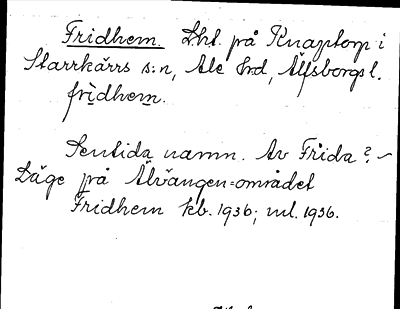 Fridhem. Lht. på Knaptorp i
Starrkärrs s:n, Ale hrd, Älfsborgs l.
frìdhem.
Sentida namn. Av Frida? ~
Läge på Älvängen=området
Fridhem kb. 1936; ml. 1936.